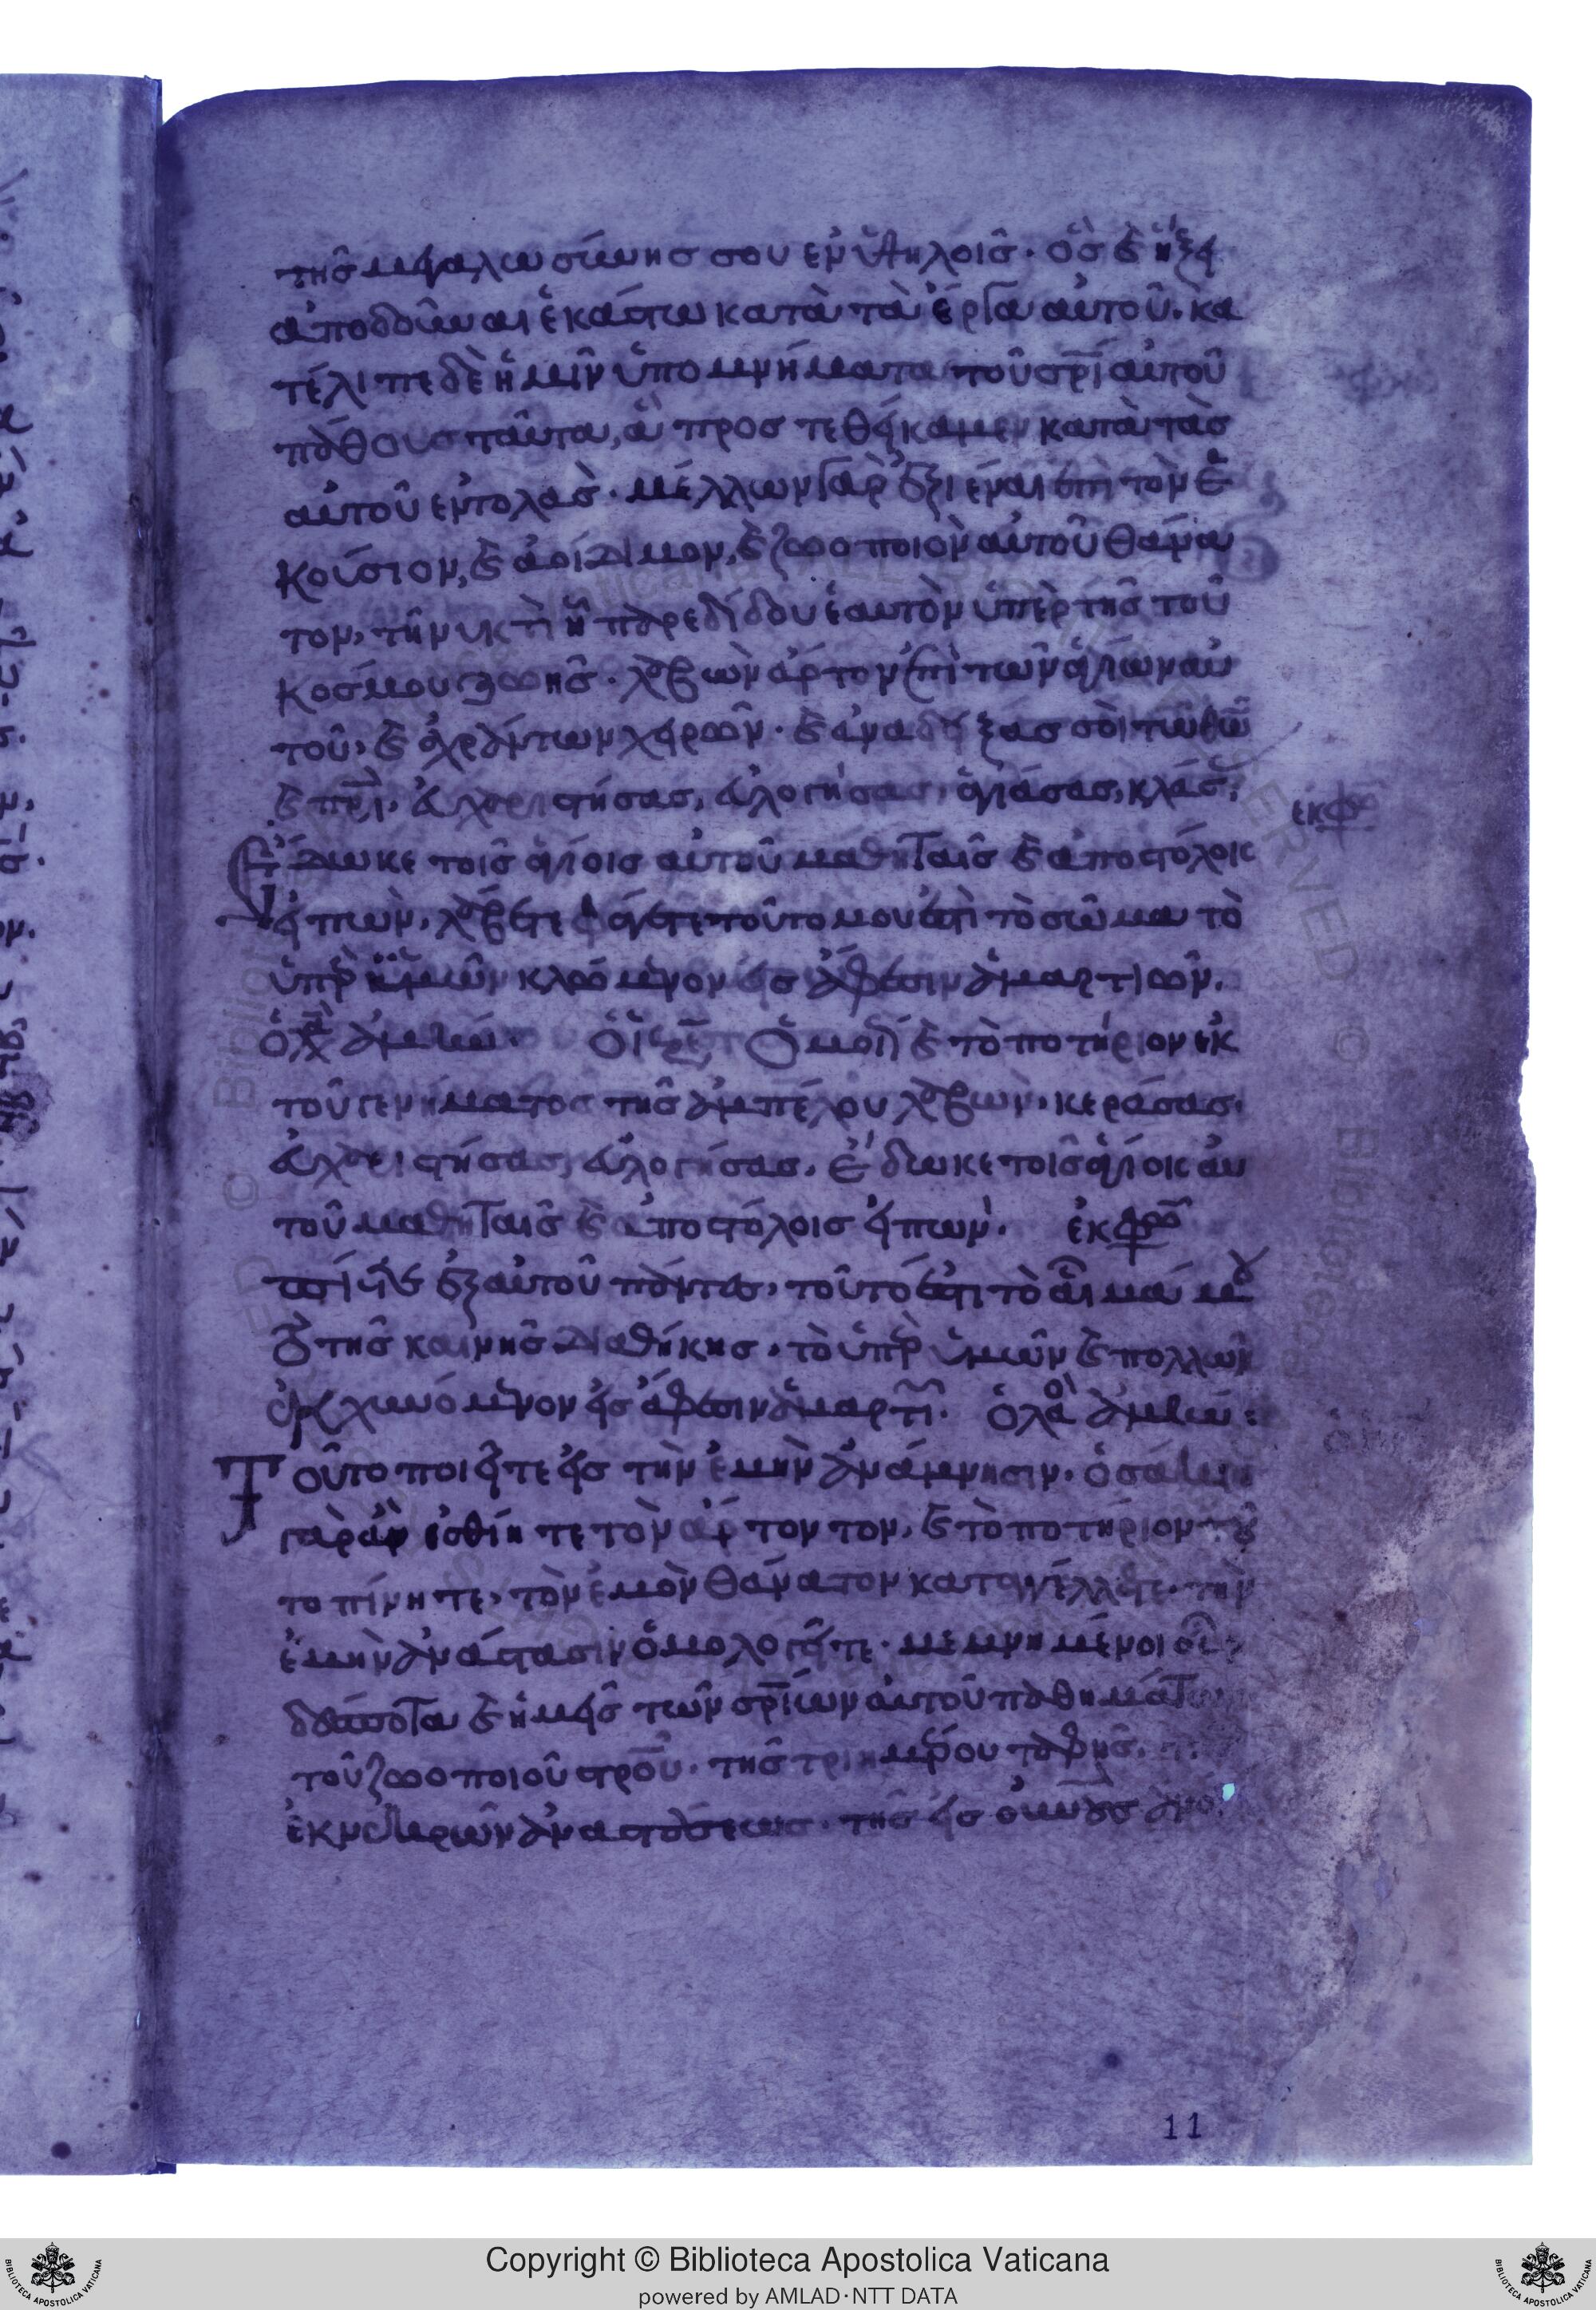 τῆς μεγαλωσύνης σου ἐν ὑψηλοῖς· ὃς καὶ ἥξει
ἀποδοῦναι ἑκάστω κατὰ τὰ ἔργα αὐτοῦ· κα
τέλιπε δὲ ἡμῖν ὑπομνήματα τοῦ σρίου αὐτοῦ
πάθους ταῦτα, ἃ προστεθείκαμεν κατὰ τὰς
αὐτοῦ ἐντολάς· μέλλων γὰρ ἐξιέναι ἐπὶ τὸν ἑ
κούσιον, καὶ ἀοίδιμον, καὶ ζωοποιὸν αὐτοῦ θάνα
τον, τῆ νυκτὶ ἧ παρεδίδου ἑαυτὸν ὑπὲρ τῆς τοῦ
κόσμου ζωῆς· λαβὼν ἄρτον ἐπὶ τῶν ἁγίων αὐ
τοῦ, καὶ ἀχράντων χειρῶν· καὶ ἀναδείξας σοὶ τῶ θῶ
καὶ πρι, εὐχαριστήσας, εὐλογήσας, ἁγιάσας, κλάσας,
ἐκφω
Ἔδωκε τοῖς ἁγίοις αὐτοῦ μαθηταῖς καὶ ἀποστόλοις
εἰπών, λάβετε φάγετε τοῦτο μου ἐστὶ τὸ σῶμα τὸ
ὑπὲρ ὑμῶν κλώμενον εἰς ἄφεσιν ἁμαρτιῶν.
ὁ λα ἀμήν. Ὁμοί καὶ τὸ ποτήριον ἐκ
τοῦ γενήματος τῆς ἀμπέλου λαβών, κεράσας,
εὐχαριστήσας, εὐλογήσας, ἔδωκε τοῖς ἁγίοις αὐ
τοῦ μαθηταῖς καὶ ἀποστόλοις εἰπών. ἐκφω
πίετε ἐξ αὐτοῦ πάντες, τοῦτό ἐστι τὸ αἷμά μου
τὸ τῆς καινῆς διαθήκης, τὸ ὑπὲρ ὑμῶν καὶ πολλῶν
ἐκχυνόμενον εἰς ἄφεσιν ἁμαρτι. ὁ λαὸ ἀμήν:
Τοῦτο ποιεῖτε εἰς τὴν ἐμὴν ἀνάμνησιν. ὁσάκις
γὰρ ἂν ἐσθίητε τὸν ἄρτον τον, καὶ τὸ ποτήριον τοῦ
το πίνητε, τὸν ἐμὸν θάνατον καταγγέλλετε, τὴν
ἐμὴν ἀνάστασιν ὁμολογεῖτε. μεμνημένοι οὖν
δέσποτα καὶ ἡμεῖς τῶν σρίων αὐτοῦ παθημάτων
τοῦ ζωοποιοῦ στροῦ. τῆς τριημέρου ταφῆς,
ἐκ νεκρῶν ἀναστάσεως. τῆς εἰς οὐνοὺς ἀνό
11
Copyright © Biblioteca Apostolica Vaticana
powered by AMLAD·NTT DATA